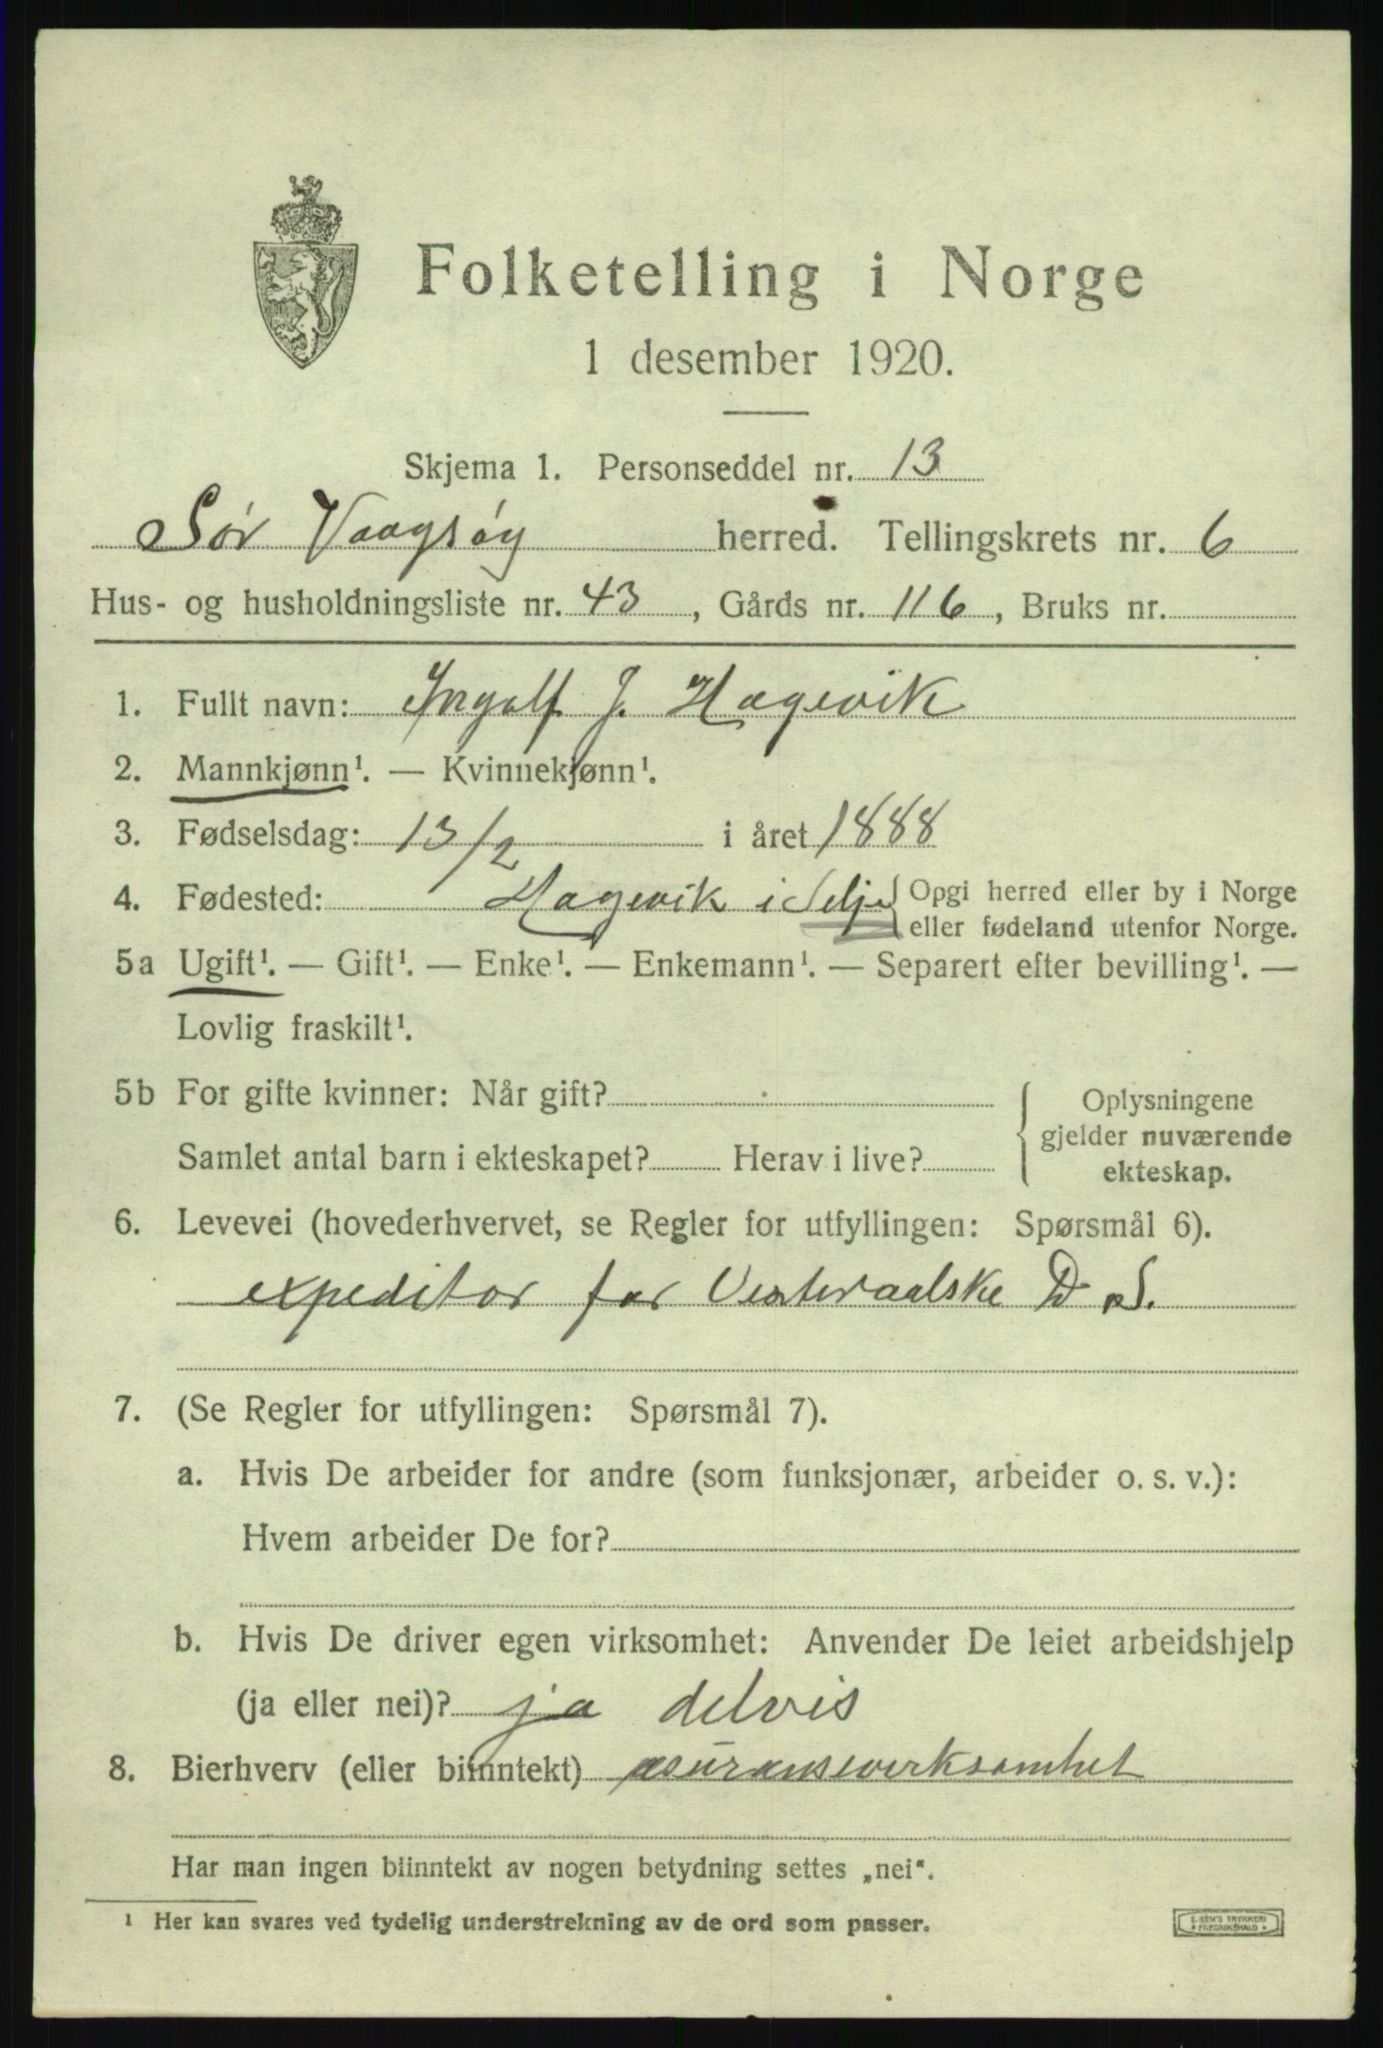 Folketelling i Norge
1 desember 1920.
Skjema 1. Personseddel nr. 13
Sør Vaagsøy herred. Tellingskrets nr. 6
Hus- og husholdningsliste nr. 43, Gårds nr. 116, Bruks nr.
1. Fullt navn: Ingolf J. Hagevik
2. Mannkjønn¹. — Kvinnekjønn¹.
3. Fødselsdag: 13/2 i året 1888
4. Fødested: Hagevik i Selje { Opgi herred eller by i Norge
eller fødeland utenfor Norge.
5a Ugift¹. — Gift¹. — Enke¹. — Enkemann¹. — Separert efter bevilling¹. —
Lovlig fraskilt¹.
5b For gifte kvinner: Når gift?
Samlet antal barn i ekteskapet? Herav i live?
{ Oplysningene
gjelder nuværende
ekteskap.
6. Levevei (hovederhvervet, se Regler for utfyllingen: Spørsmål 6).
expeditor for Vesteraalske D. S.
7. (Se Regler for utfyllingen: Spørsmål 7).
a. Hvis De arbeider for andre (som funksjonær, arbeider o. s. v.):
Hvem arbeider De for?
b. Hvis De driver egen virksomhet: Anvender De leiet arbeidshjelp
(ja eller nei)? ja delvis
8. Bierhverv (eller biinntekt) asuransevirksomhet
Har man ingen biinntekt av nogen betydning settes „nei“.
¹ Her kan svares ved tydelig understrekning av de ord som passer.
E. SEM'S TRYKKERI
FREDRIKSHALD